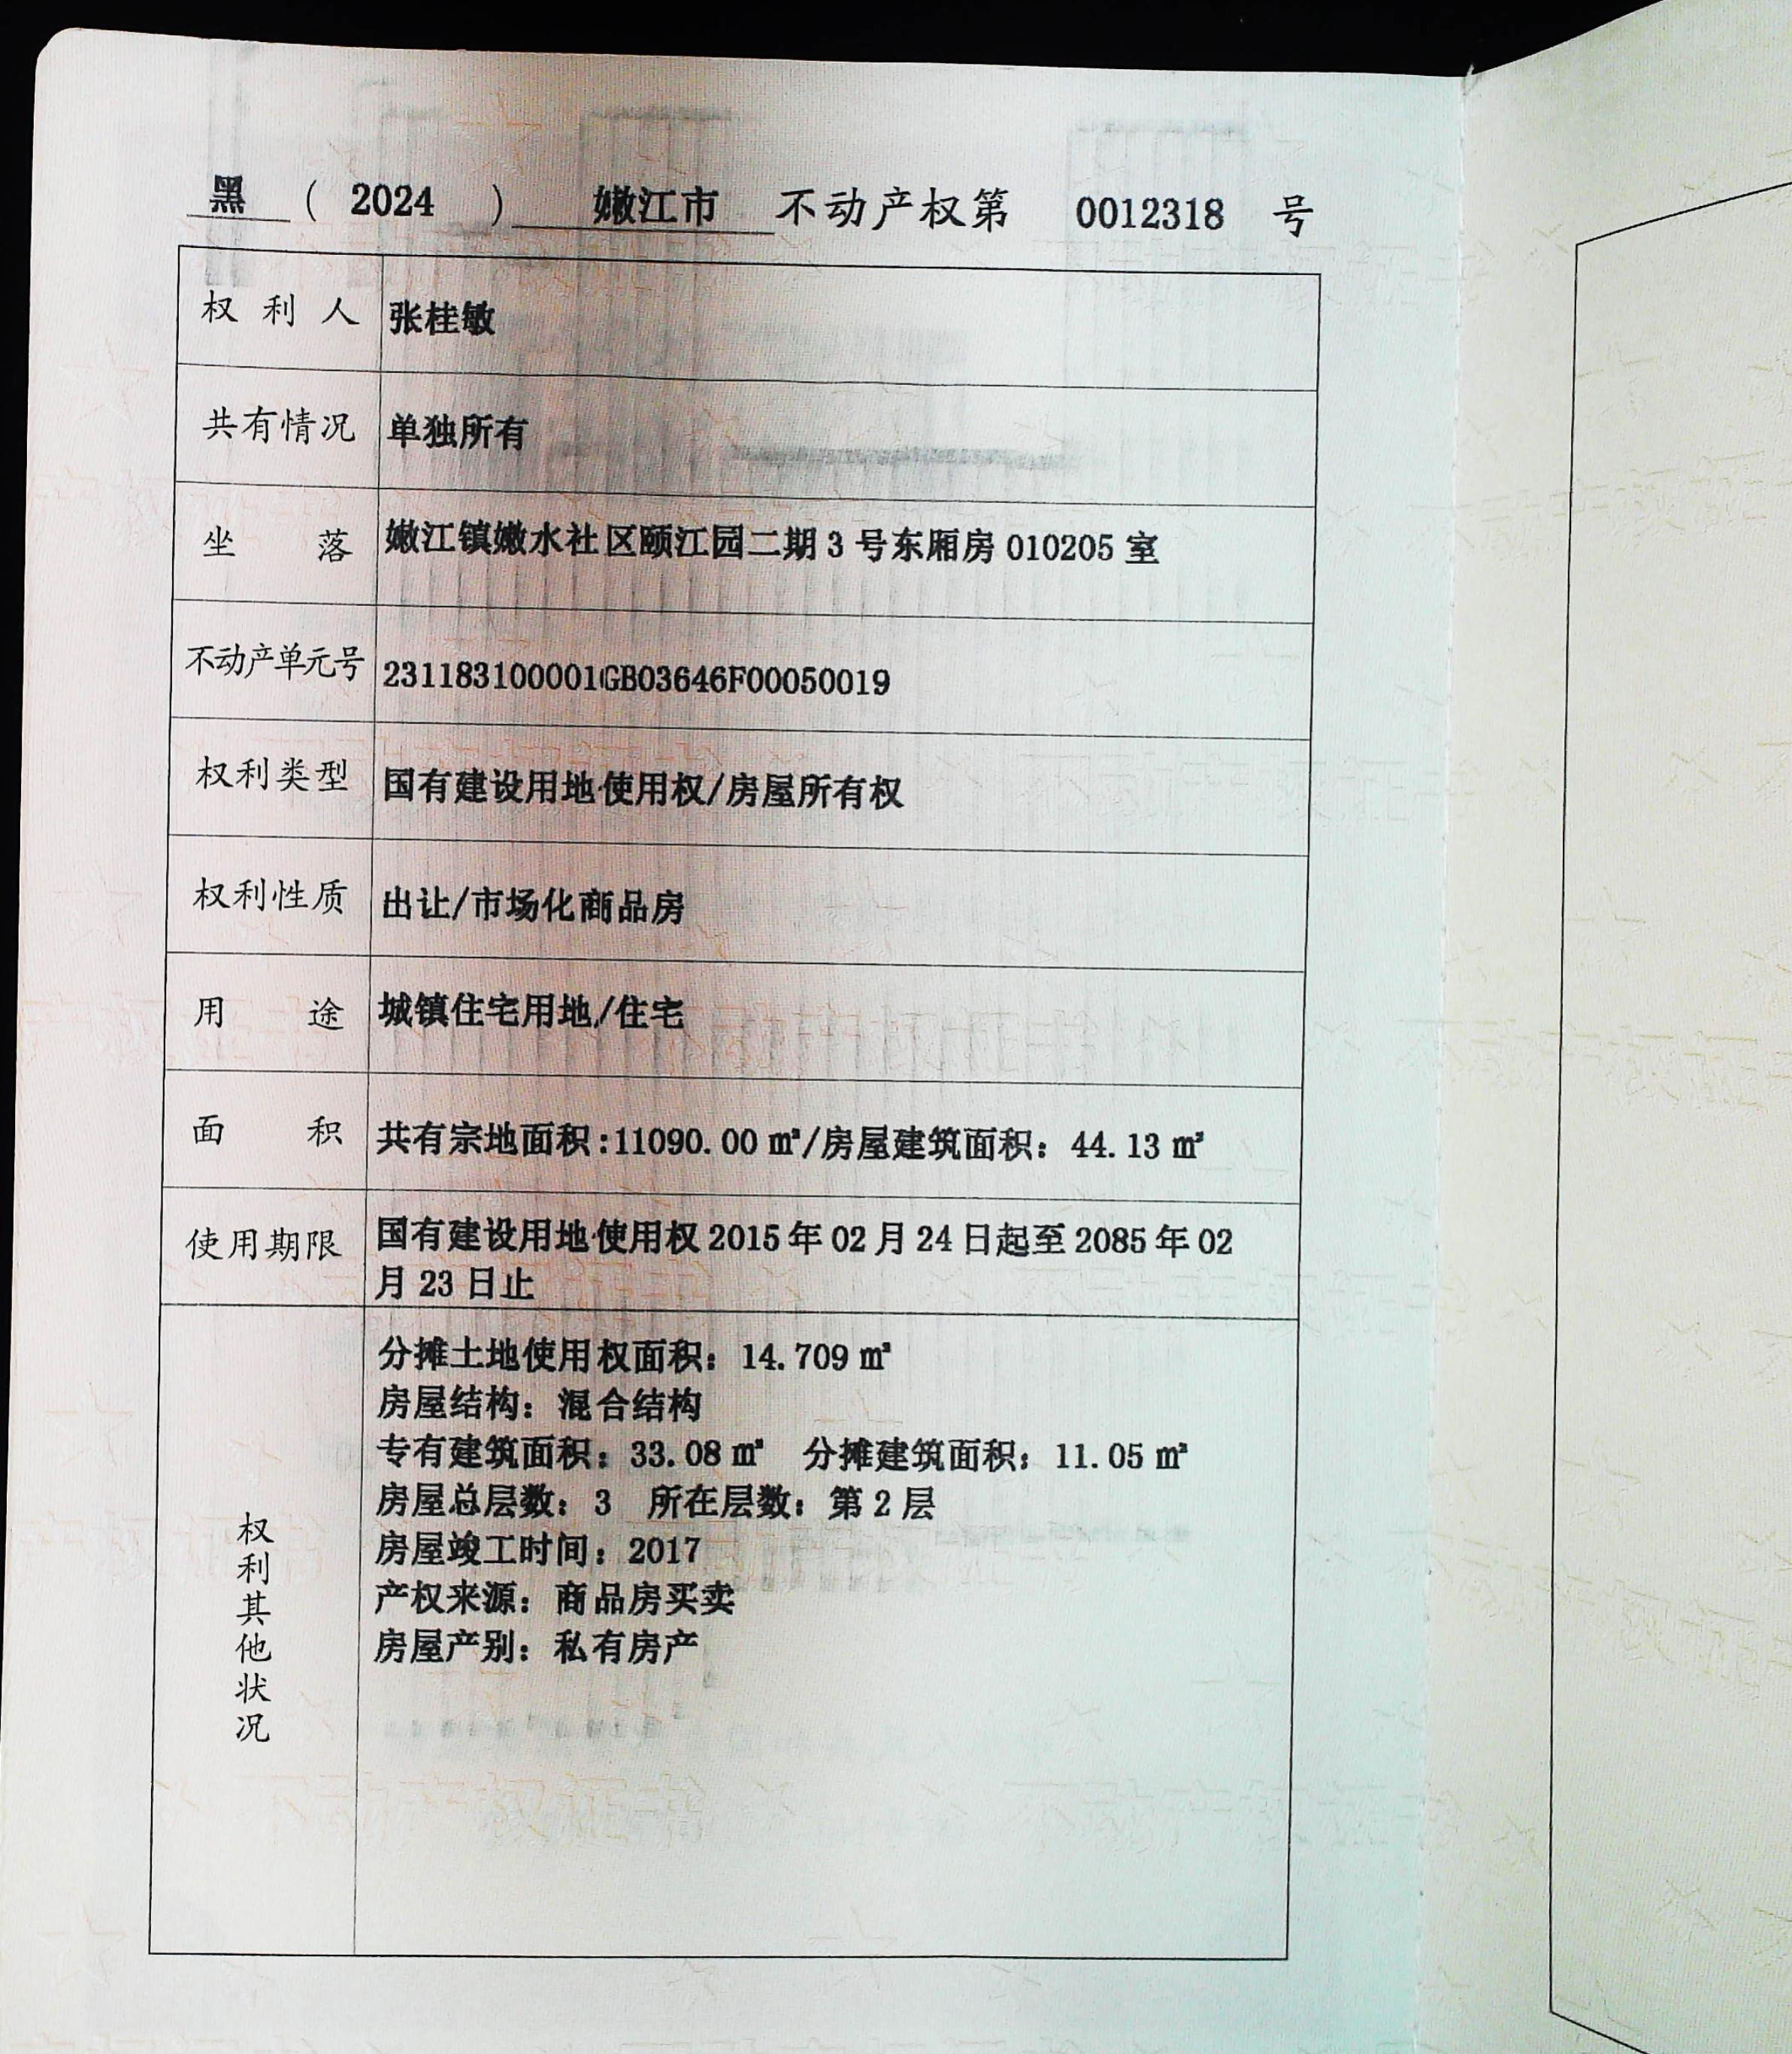 黑 ( 2024 ) 嫩江市 不动产权第 0012318 号
权利人 张桂敏
共有情况 单独所有
坐落 嫩江镇嫩水社区颐江园二期 3 号东厢房 010205 室
不动产单元号 231183100001GB03646F00050019
权利类型 国有建设用地使用权/房屋所有权
权利性质 出让/市场化商品房
用途 城镇住宅用地/住宅
面积 共有宗地面积:11090.00 ㎡/房屋建筑面积：44.13 ㎡
使用期限 国有建设用地使用权 2015 年 02 月 24 日起至 2085 年 02
月 23 日止
权利其他状况
分摊土地使用权面积：14.709 ㎡
房屋结构：混合结构
专有建筑面积：33.08 ㎡ 分摊建筑面积：11.05 ㎡
房屋总层数：3 所在层数：第 2 层
房屋竣工时间：2017
产权来源：商品房买卖
房屋产别：私有房产